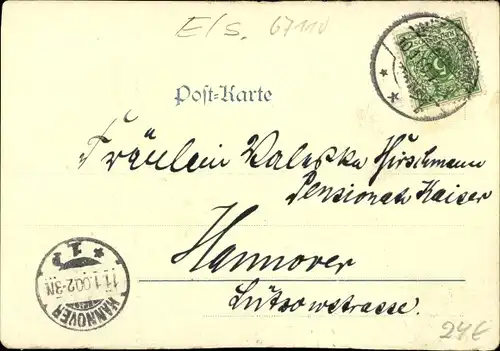 E/S. 67110
Post-Karte
Fräulein Valeska Hirschmann
Pensionat Kaiser
Hannover
Lützowstrasse.
HANNOVER
11.1.00.2-3N
* 1 r
24€